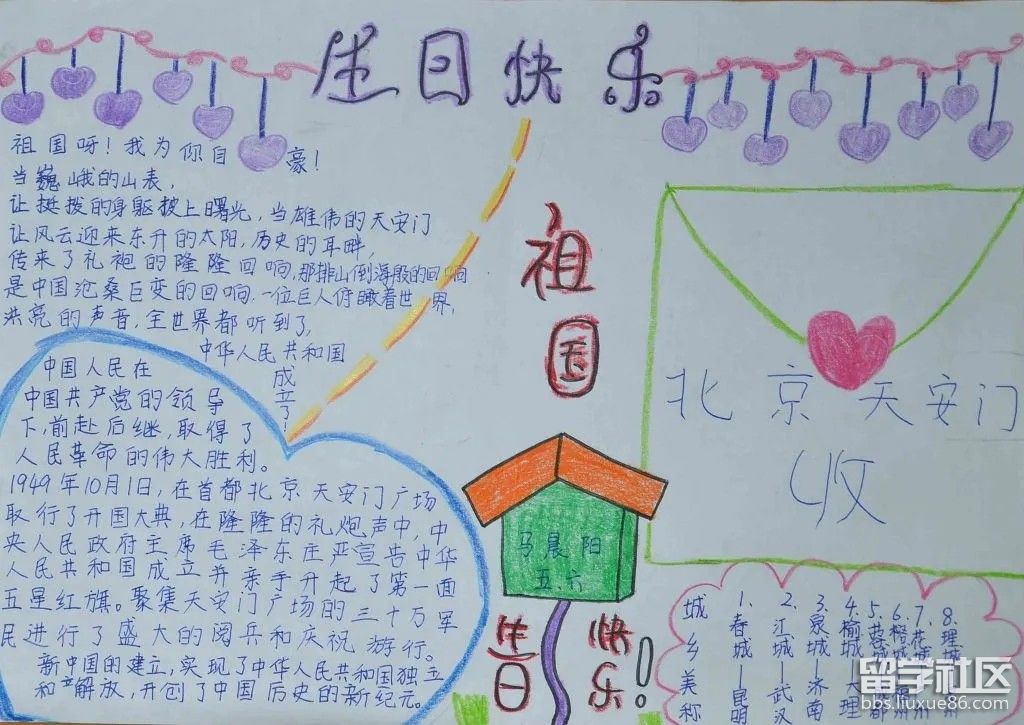 生日快乐
祖国呀！我为你自豪！
当巍峨的山表，
让挺拨的身躯披上曙光，当雄伟的天安门
让风云迎来东升的太阳，历史的耳畔，
传来了礼袍的隆隆回响，那排山倒海般的回响
是中国沧桑巨变的回响，一位巨人俯瞰着世界，
洪亮的声音，全世界都听到了，
中华人民共和国
成立了！
中国人民在
中国共产党的领导
下，前赴后继，取得了
人民革命的伟大胜利。
1949年10月1日，在首都北京天安门广场
取行了开国大典，在隆隆的礼炮声中，中
央人民政府主席毛泽东庄严宣告中华
人民共和国成立并亲手升起了第一面
五星红旗。聚集天安门广场的三十万军
民进行了盛大的阅兵和庆祝游行。
新中国的建立，实现了中华人民共和国独立
和解放，开创了中国历史的新纪元。
祖国
马晨阳
五六
生日
快乐！
北京天安门
收
城乡美称
1、春城—昆明
2、江城—武汉
3、泉城—济南
4、榆城—大理
5、蓉城 都
6、
7、花城 州
8、
留学社区
bbs.liuxue86.com